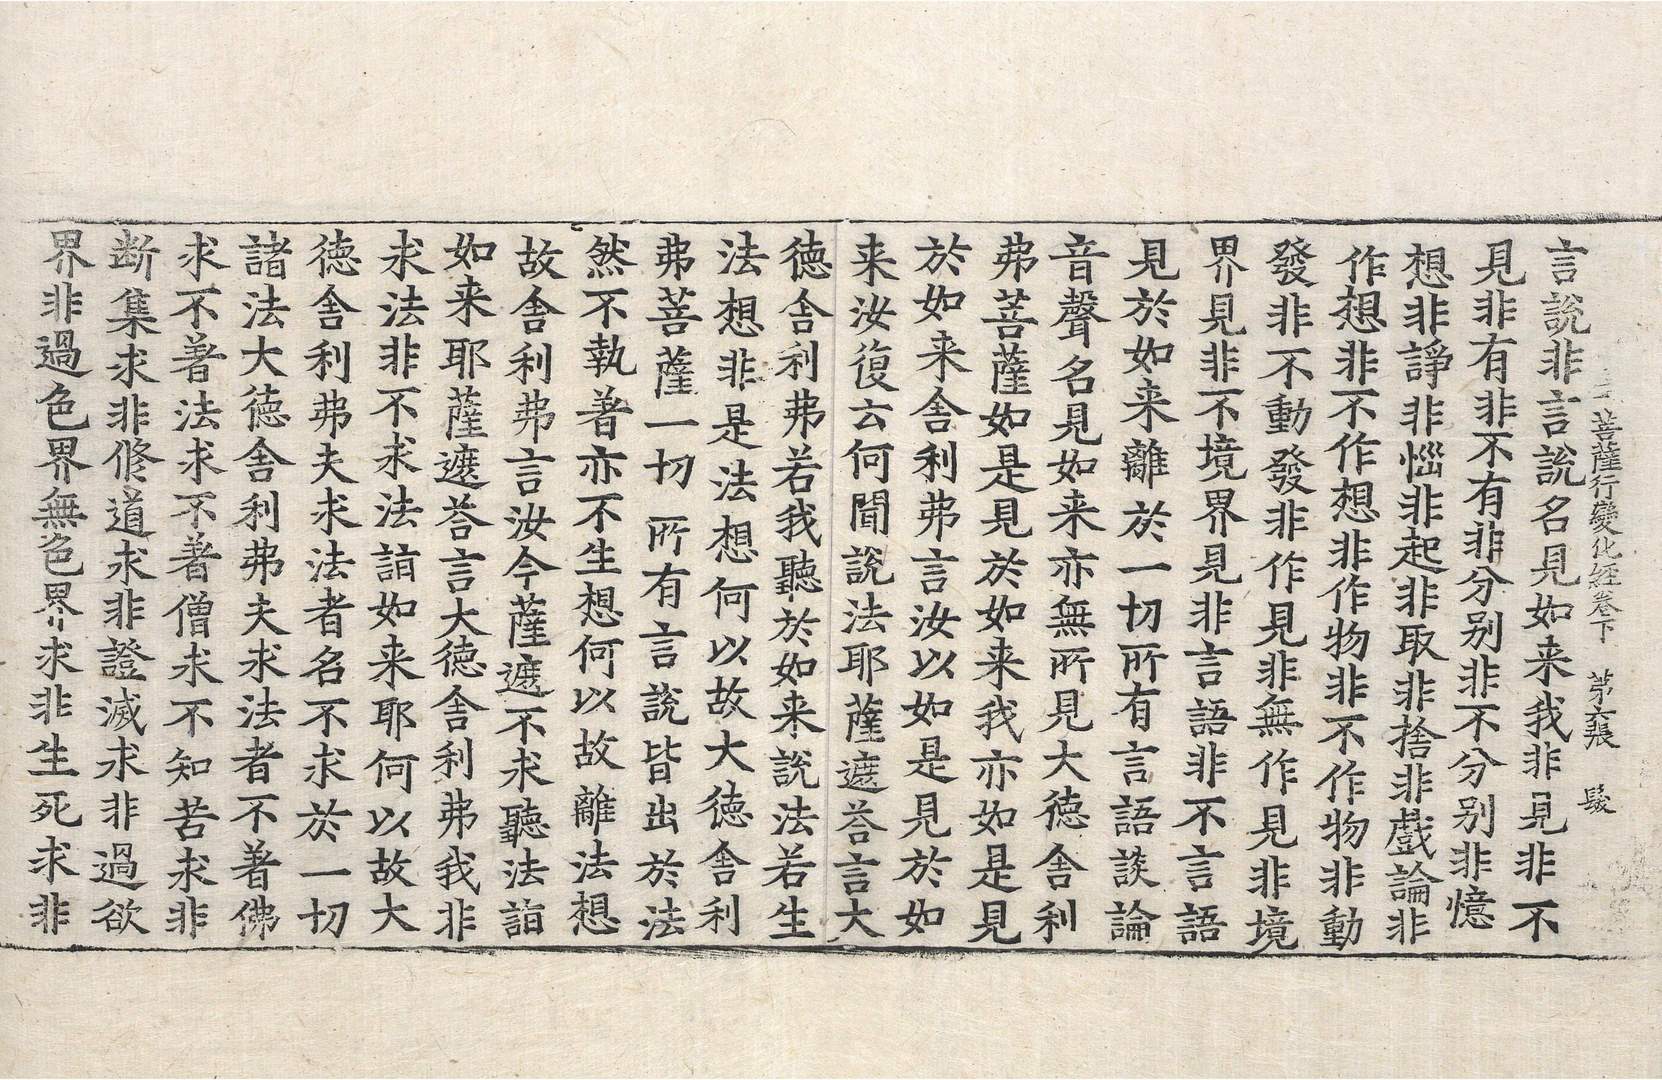 菩薩行變化經卷下　第六張　髮
言說非言說名見如来我非見非不
見非有非不有非分別非不分別非憶
想非諍非惱非起非取非捨非戲論非
作想非不作想非作物非不作物非動
發非不動發非作見非無作見非境
界見非不境界見非言語非不言語
見於如来離於一切所有言語談論
音聲名見如来亦無所見見大德舍利
弗菩薩如是見於如来我亦如是見
於如来舍利弗言汝以如是見於如
来汝復云何聞說法耶薩遮荅言大
德舍利弗若我聽於如来說法若生
法想非是法想何以故大德舍利
弗菩薩一切所有言說皆出於法
然不執著亦不生想何以故離法想
故舍利弗言汝今薩遮不求聽法詣
如来耶薩遮荅言大德舍利弗我非
求法非不求法詣如来耶何以故大
德舍利弗夫求法者名不求於一切
諸法大德舍利弗夫求法者不著佛
求不著法求不著僧求不知苦求非
断集求非修道求非證滅求非過欲
界非過色界無色界求非生死求非